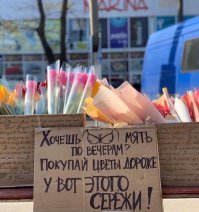 MARINA
Хочешь мять
по вечерам?
Покупай цветы дороже
у вот этого
Сережи!